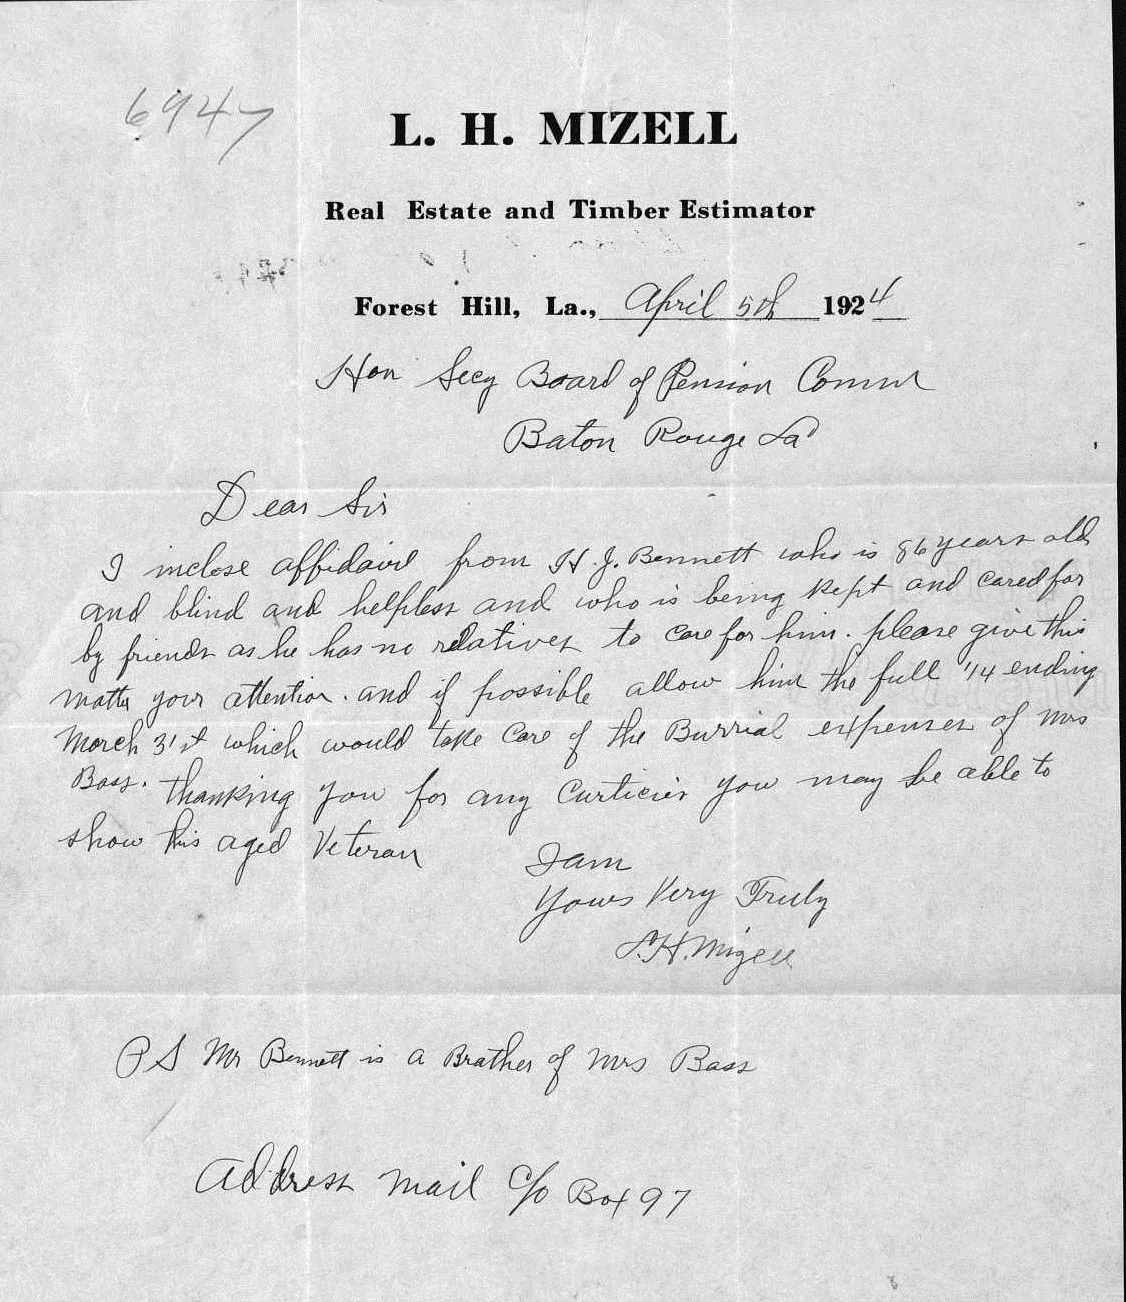 6947
L. H. MIZELL
Real Estate and Timber Estimator
Forest Hill, La., April 5th 1924
Hon Secy Board of Pension Comm
Baton Rouge La
Dear Sir
I inclose affidavid from H. J. Bennett who is 86 years old
and blind and helpless and who is being kept and cared for
by friends as he has no relatives to care for him. please give this
matter your attention. and if possible allow him the full 1/4 ending
March 31st which would take care of the Burrial expenses of Mrs
Bass. thanking you for any curticies you may be able to
show this aged Veteran
I am
Yours Very Truly
L. H. Mizell
PS Mr Bennett is a Brather of Mrs Bass
Address mail c/o Box 97